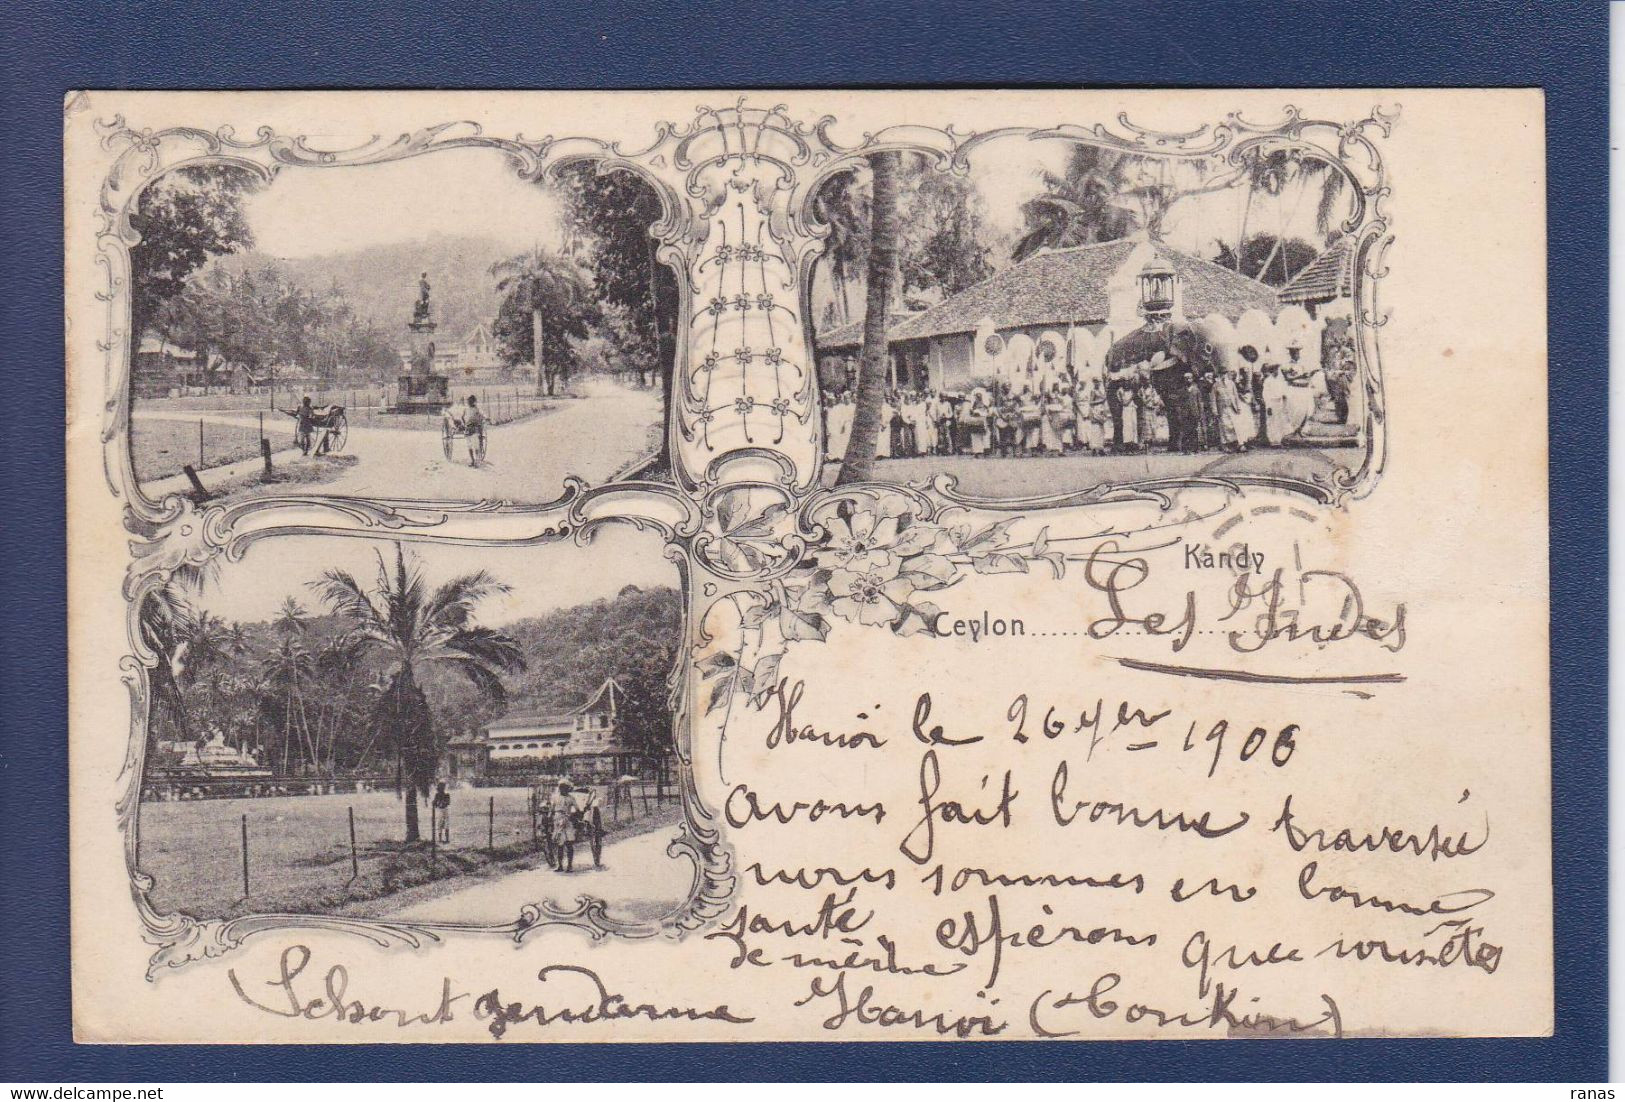 Kandy
Ceylon Les Indes
Hanoï le 26 1906
avons fait bonne traversée
nous sommes en bonne
santé espèrons que vous êtes
de même
gendarme Hanoï (Tonkin)
ranas